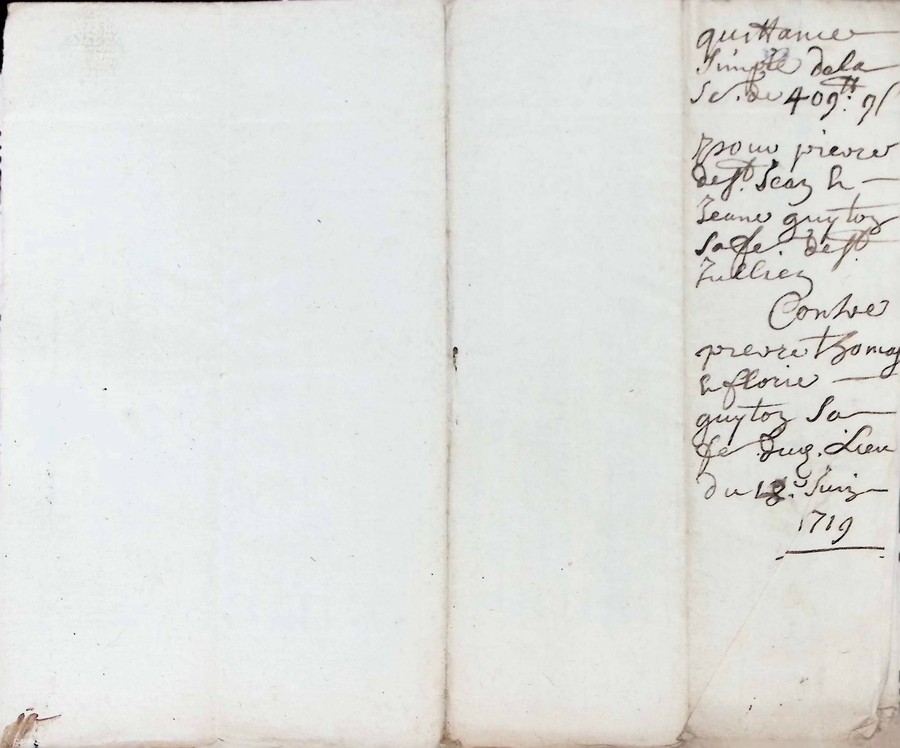 quittance
Simple dela
Sē. de 409ᵗᵗ: 9ſ
pour pierre
defᵗ. Jean &
Jeane guyton
Sa fē. defᵗ.
Jullien
Contre
pierre thomas
& florie
guyton Sa
fē
du 18.ᵉ Juin
1719